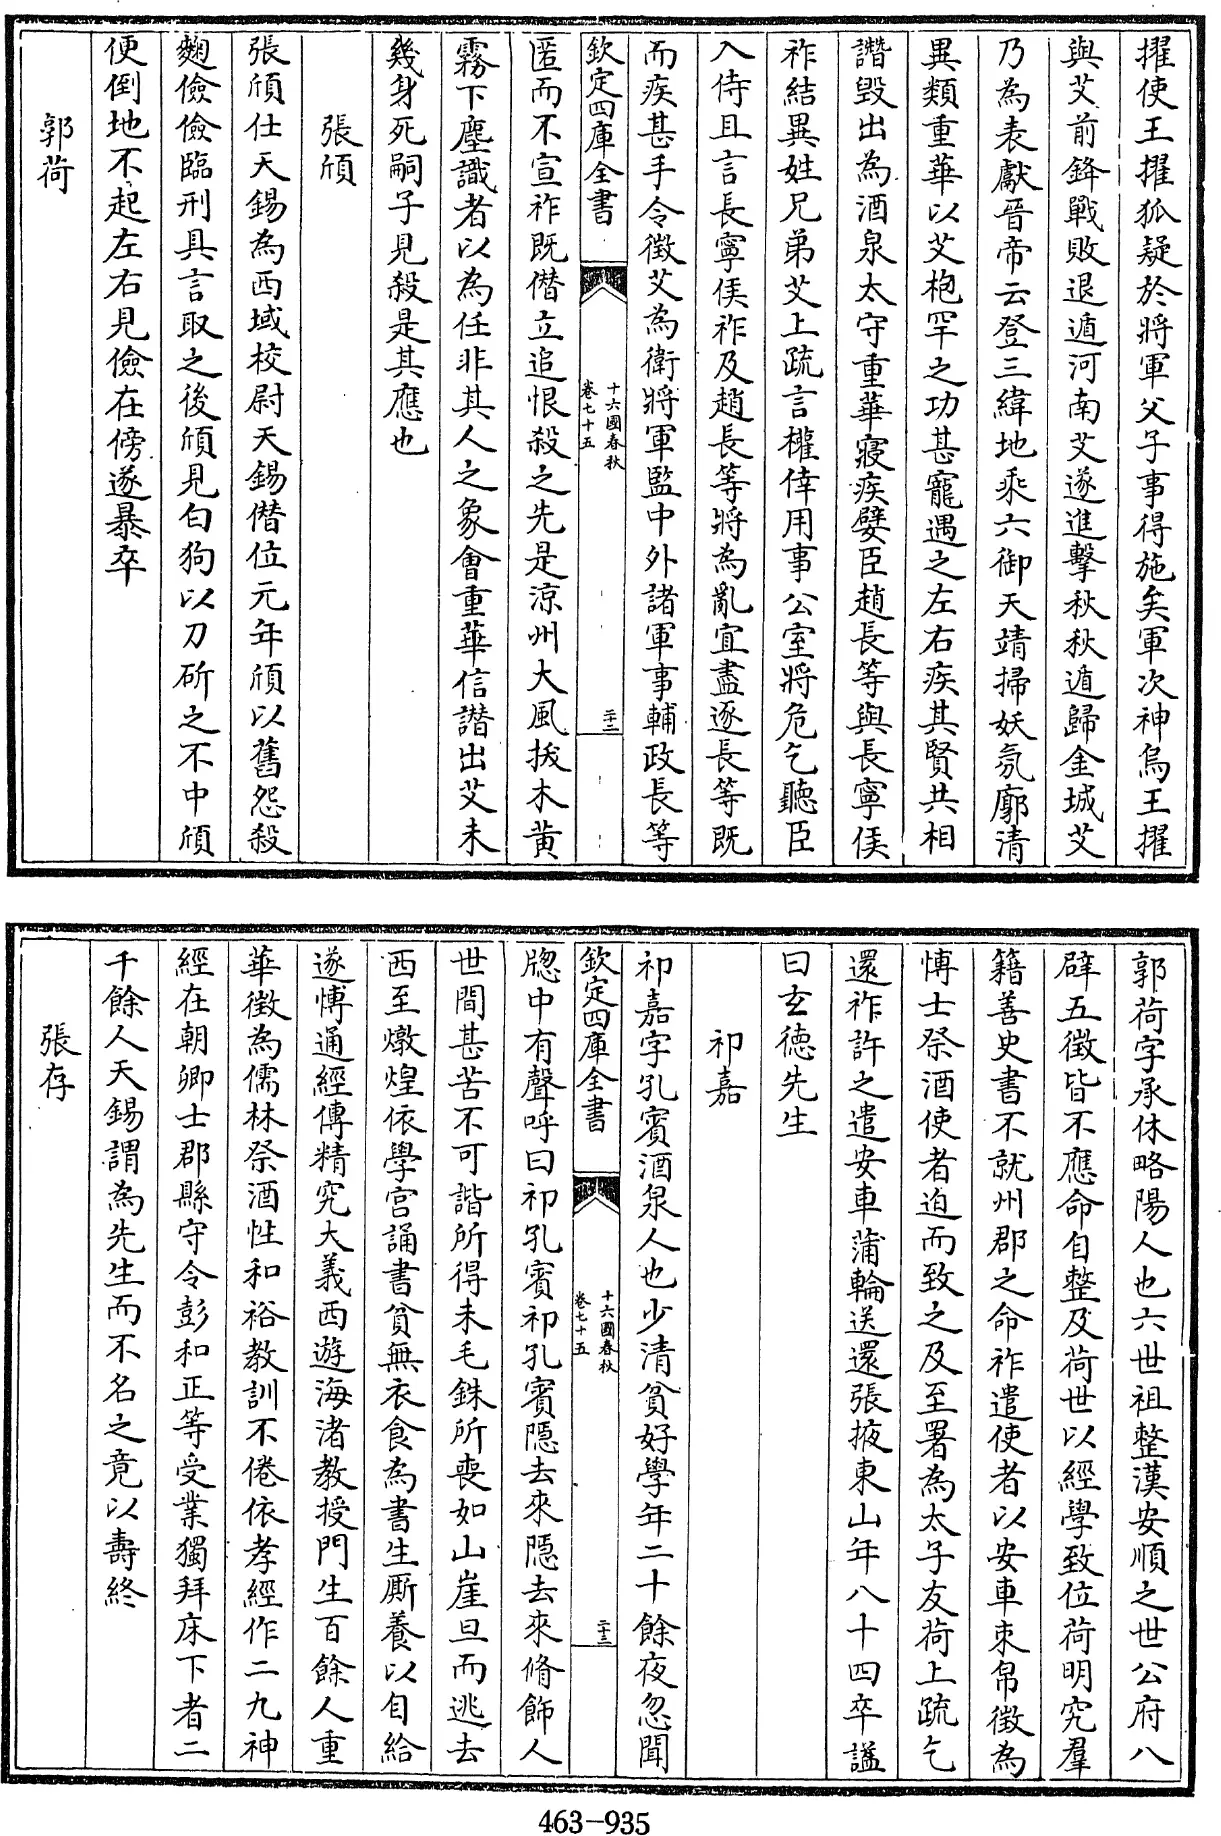 擢使王擢狐疑於將軍父子事得施矣軍次神鳥王擢
與艾前鋒戰敗退遁河南艾遂進擊秋秋遁歸金城艾
乃為表獻晉帝云登三緯地乘六御天靖掃妖氛廓清
異類重華以艾枹罕之功甚寵遇之左右疾其賢共相
譖毀出為酒泉太守重華寢疾嬖臣趙長等與長寧侯
祚結異姓兄弟艾上疏言權倖用事公室將危乞聽臣
入侍且言長寧侯祚及趙長等將為亂宜盡逐長等既
而疾甚手令徵艾為衛將軍監中外諸軍事輔政長等
欽定四庫全書
十六國春秋
卷七十五
二十二
匿而不宣祚既僭立追恨殺之先是涼州大風拔木黃
霧下塵識者以為任非其人之象會重華信譖出艾未
幾身死嗣子見殺是其應也
張頎
張頎仕天錫為西域校尉天錫僭位元年頎以舊怨殺
麴儉儉臨刑具言取之後頎見白狗以刀斫之不中頎
便倒地不起左右見儉在傍遂暴卒
郭荷
郭荷字承休略陽人也六世祖整漢安順之世公府八
辟五徵皆不應命自整及荷世以經學致位荷明究羣
籍善史書不就州郡之命祚遣使者以安車束帛徵為
博士祭酒使者迫而致之及至署為太子友荷上疏乞
還祚許之遣安車蒲輪送還張掖東山年八十四卒謚
曰玄德先生
祁嘉
祁嘉字孔賓酒泉人也少清貧好學年二十餘夜忽聞
欽定四庫全書
十六國春秋
卷七十五
二十三
牕中有聲呼曰祁孔賓祁孔賓隱去來隱去來脩飾人
世間甚苦不可諧所得未毛銖所喪如山崖旦而逃去
西至燉煌依學宫誦書貧無衣食為書生厮養以自給
遂博通經傳精究大義西遊海渚教授門生百餘人重
華徵為儒林祭酒性和裕教訓不倦依孝經作二九神
經在朝卿士郡縣守令彭和正等受業獨拜床下者二
千餘人天錫謂為先生而不名之竟以壽終
張存
463-935